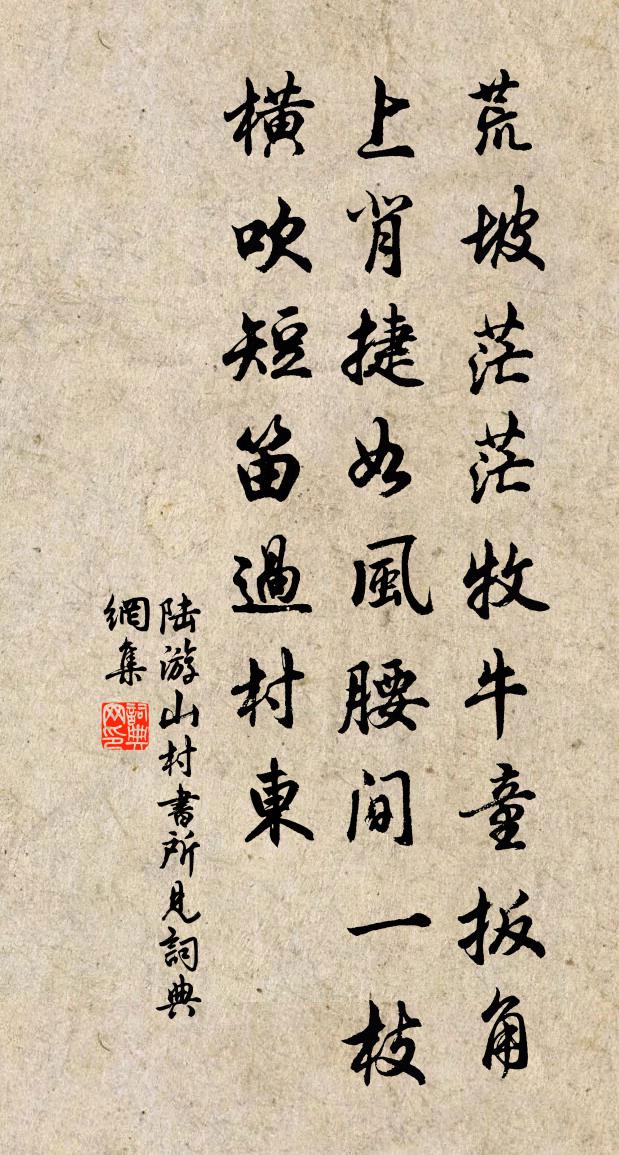 荒坡茫茫牧牛童扳角
上背捷如風腰间一枝
橫吹短笛過村東
陆游山村書所見詞典
網集
詞典網印